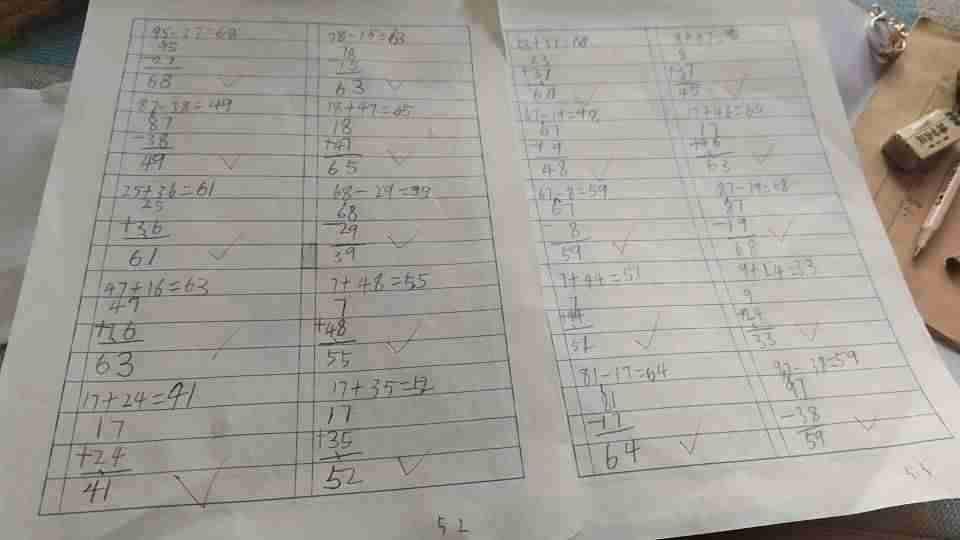 95-27=68
95
-27
68
78-15=63
78
-15
63
87-38=49
87
-38
49
18+47=65
18
+47
65
25+36=61
25
+36
61
68-29=39
68
-29
39
47+16=63
47
+16
63
7+48=55
7
+48
55
17+24=41
17
+24
41
17+35=52
17
+35
52
52
+37
45
67-19=48
67
-19
48
17+46=63
17
+46
63
67-8=59
67
-8
59
87-19=68
87
-19
68
7+44=51
7
+44
51
9+24=33
9
+24
33
81-17=64
81
-17
64
97-38=59
97
-38
59